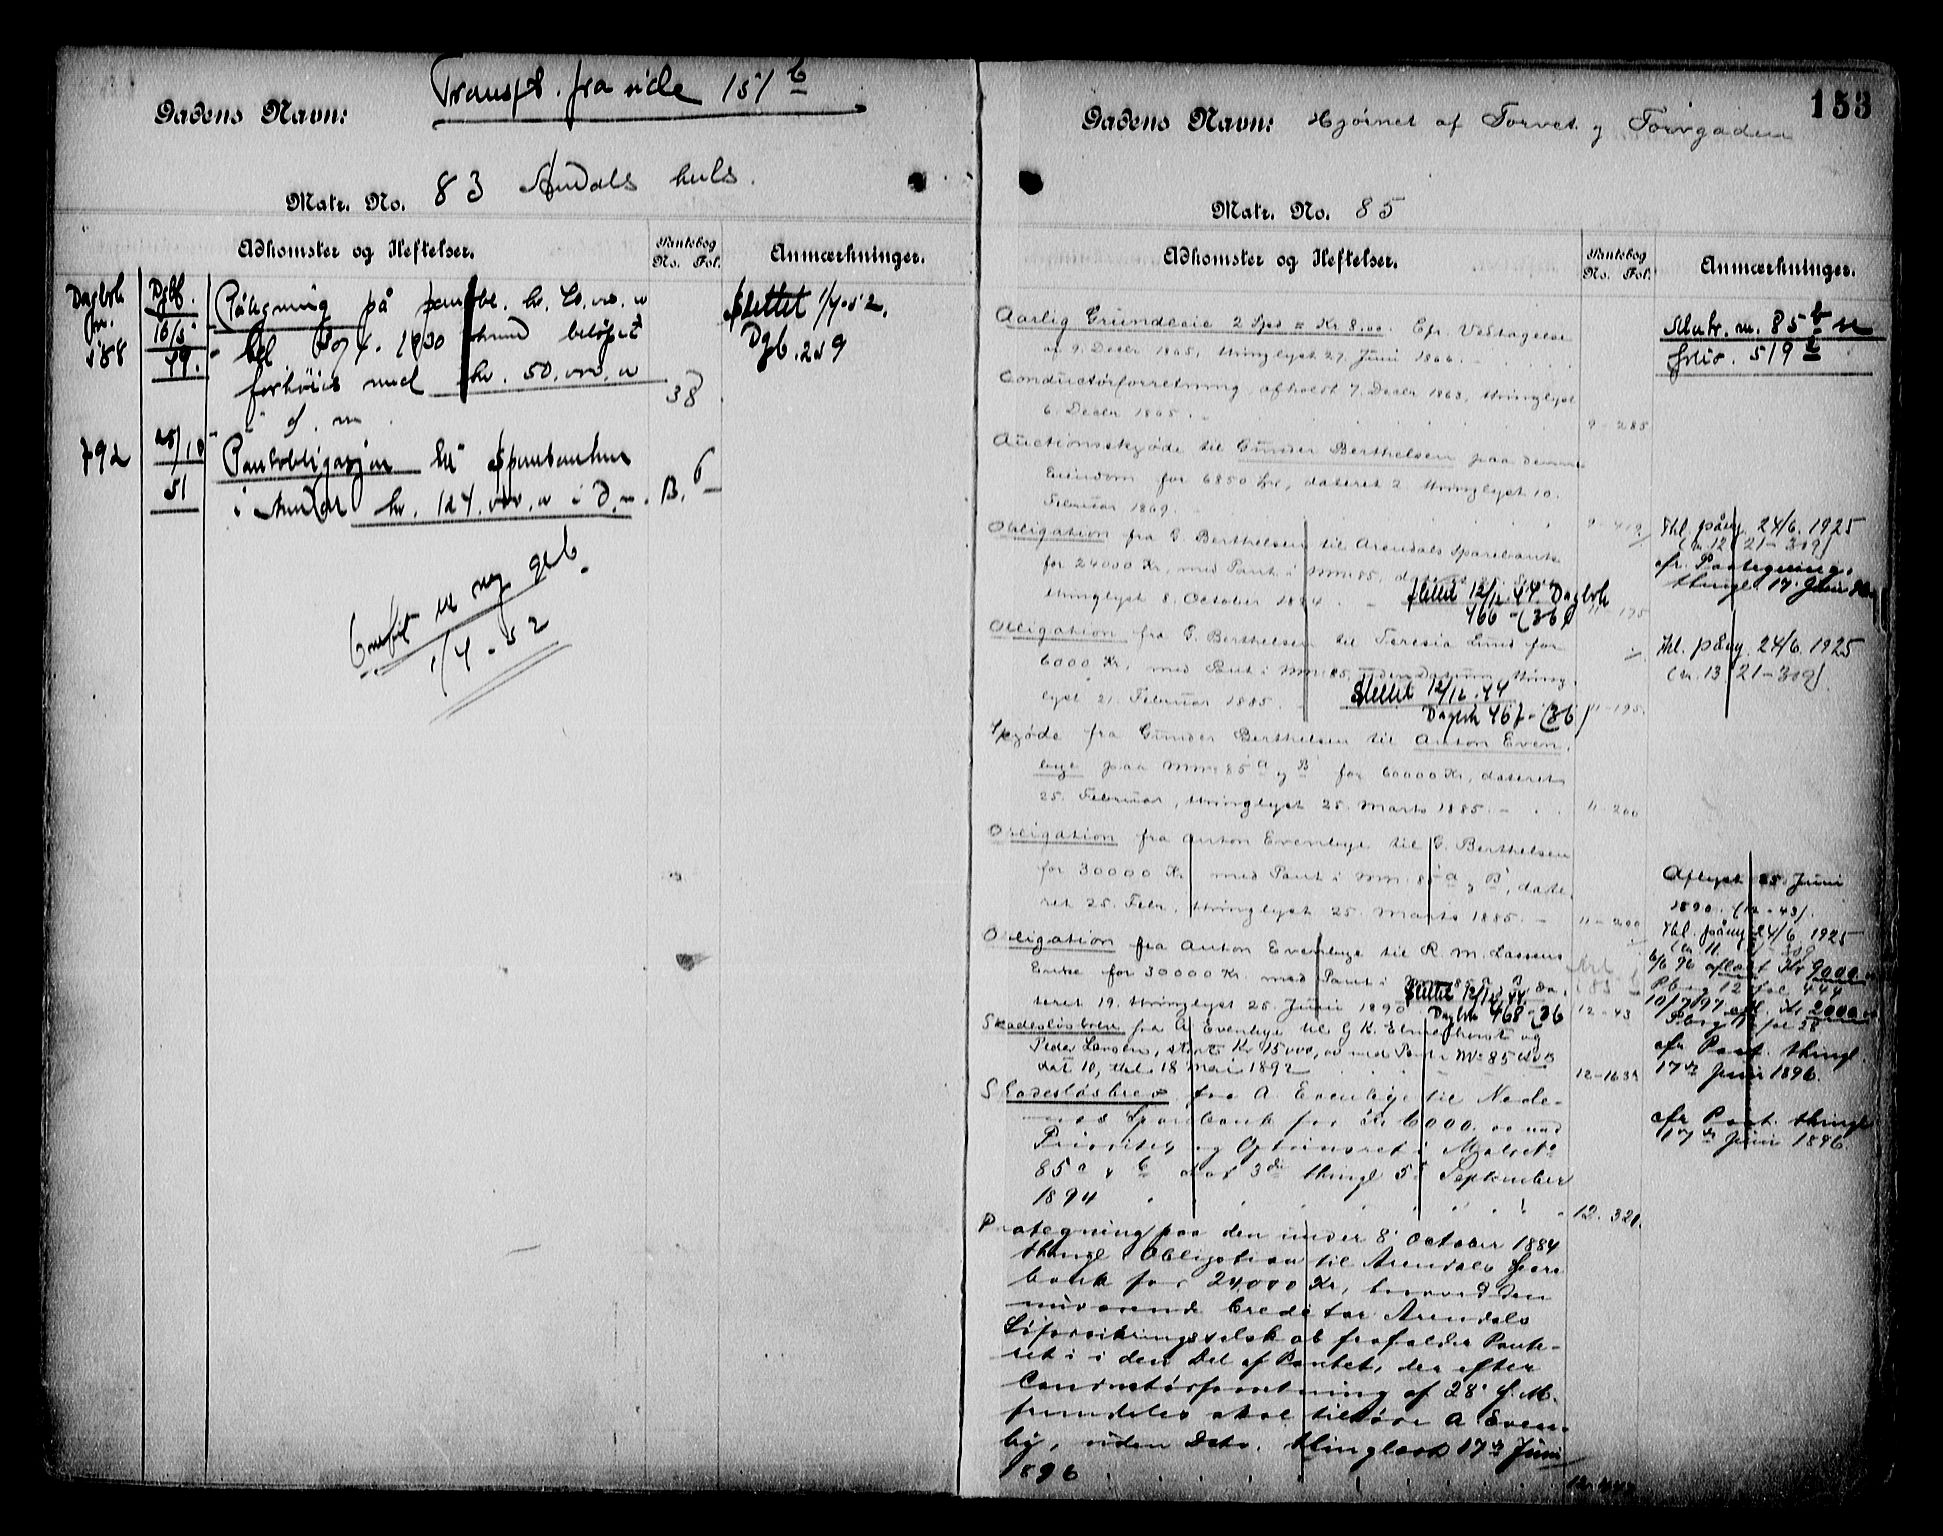 Transpt. fra side 151 b
Gadens Navn:
Matr. No. 83 Arendals
Adkomster og Heftelser.
Pantebog
No. Fol.
Anmærkninger.
Dagbok
nr.
588
Dgbf.
16/5
49.
Påtegning på
1930 beløpet
forhøies med kr. 50.000.00
38
Slettet 1/4-52.
Dgb. 259
792
25/10
51
Pantobligasjon til Sparebanken
i Arendal kr. 124.000.00 i d.m.
B. 6
Omført til ny glb.
1/4-52
153
Gadens Navn: Hjørnet af Torvet og Torvgaden
Matr. No. 85
Adkomster og Heftelser.
Pantebog
No. Fol.
Anmærkninger.
Aarlig Grundleie 2 Spd = Kr 8.00. Cfr. Vedtagelse
af 9. Decbr 1865, thinglyst 27. Juni 1866.
Matr. nr. 85 b se
folio. 519 b
Conductørforretning, afholdt 7. Decbr 1863, thinglyst
6. Decbr 1865.
9-285
Auctionsskjøde til Gunder Berthelsen paa denne
Eiendom for 6850 Spd, dateret 2. thinglyst 10.
Februar 1869.
9-419
Obligation fra G. Berthelsen til Arendals Sparebank
for 24000 Kr, med Pant i MNr. 85,
thinglyst 8. October 1884.
Slettet 12/12.44 Dagbok
466-(36)
11-175
Thl. påny 24/6. 1925
(nr. 12 21-309)
cfr. Paategning
thingl. 17. Juni 96
Obligation fra G. Berthelsen til Teresia Lund for
6000 Kr, med Pant i MNr. 85, uden Datum, thing-
lyst 21. Februar 1885.
Slettet 12/12.44
Dagbok 467-(36)
11-195
Thl. påny. 24/6. 1925
(nr. 13 21-309)
Skjøde fra Gunder Berthelsen til Anton Even-
bye paa MNr. 85 A og B for 60000 Kr, dateret
25. Februar, thinglyst 25. Marts 1885.
11-200
Obligation fra Anton Evenbye til G. Berthelsen
for 30000 Kr med Pant i MNr. 85 A og B, date-
ret 25. Febr, thinglyst 25. Marts 1885.
11-200
Aflyst 25. Juni
1890. (12-43).
Obligation fra Anton Evenbye til R. M. Lassens
Enke for 30000 Kr. med Pant i
teret 19. thinglyst 25. Juni 1890
Slettet 12/12.44
Dagbok 468-36
12-43
Thl. påny 24/6. 1925
6/6 96 aflæst Kr 9000
Pbog 12 fol 444
10/7 97 Kr 2000
Skadesløsbrev fra A Evenbye til G. K. Elmenhorst og
Peder Larsen, stort Kr 15000,00 med Pant i MNr 85 A og B
dat 10, thl. 18 Mai 1892
12-163
cfr Paat. thingl.
17de Juni 1896.
Skadesløsbrev fra A Evenbye til Nede-
nes Sparebank for Kr 6000.00 med
Prioritet og Oprinsret i Matr.
85 a & b dat 3de thingl 5 September
1894
12. 321.
cfr Paat. thingl
17de Juni 1896.
Paategning paa den under 8' October 1884
thingl Obligation til Arendals Spare
bank for 24,000 Kr, hvorved den
nuværende Creditor Arendals
Søforsikringsselskab frafalder Pante-
ret i den Del af Pantet, der efter
Conductørforretning af 28' f. M.
fremdeles skal tilhøre A Even-
by, uden Dato. thinglæst 17de Juni
1896